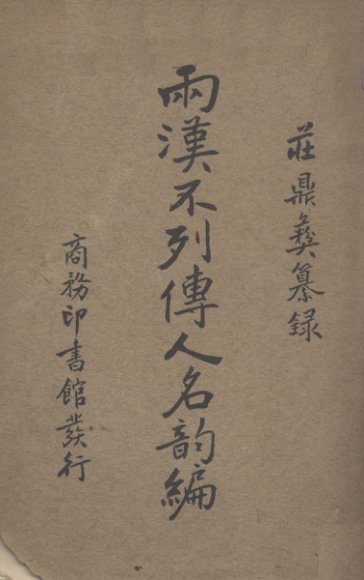 莊鼎彝纂录
兩漢不列傳人名韵編
商務印書館發行